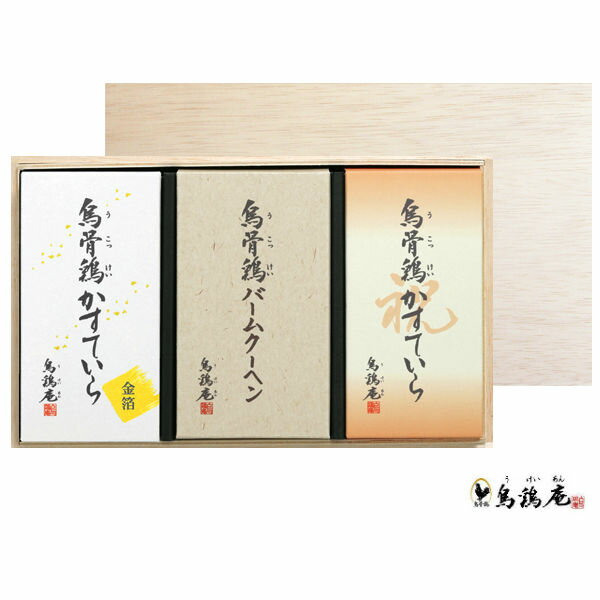 烏骨鶏かすていら
うこっけい
金箔
烏鶏庵
烏骨鶏バームクーヘン
うこっけい
烏鶏庵
祝
烏骨鶏かすていら
うこっけい
烏鶏庵
うけいあん
烏鶏庵
烏骨鶏